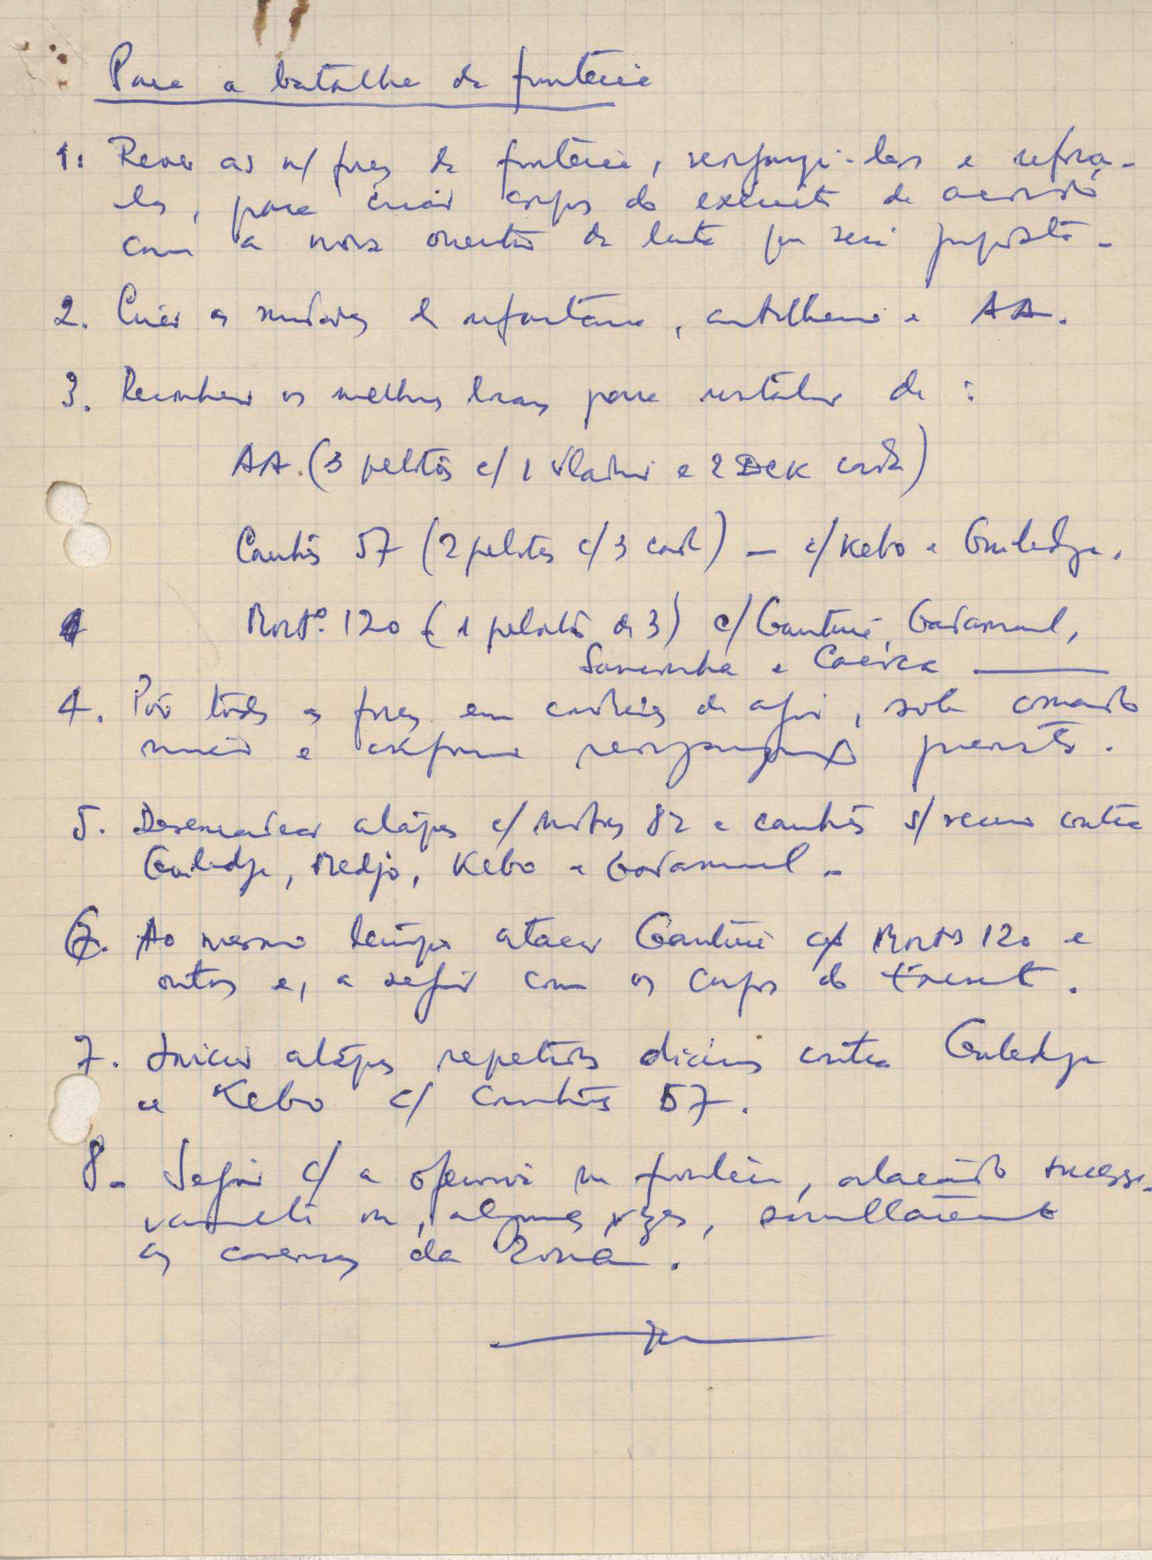 Para a batalha da fronteira
1. Rever as n/ forças da fronteira, reorganizá-las e reforçá-
las, para criar corpos do exército de acordo
com a nova orientação da luta que será proposta.
2. Criar as unidades de infantaria, artilharia e AA.
3. Reconhecer os melhores locais para instalar de :
AA. (3 pelotões c/ 1 e 2 DCK cada)
Canhões 57 (2 pelotões c/ 3 cada) — c/ Kebo e Guiledje.
Mort°. 120 (1 pelotão de 3) c/ Ganturé, Gadamael,
Sameninha e Cacoca
4. Pôr todas as forças em condições de agir, sob comando
único e conforme reorganização prevista.
5. Desencadear ataques c/ morts 82 e canhões s/ recuo contra
Guiledje, Medjo, Kebo e Gadamael.
6. Ao mesmo tempo atacar Ganturé c/ Morts 120 e
outros e, a seguir com os Corpos do Exercit.
7. Iniciar ataques repetidos diários contra Guiledje
e Kebo c/ canhões 57.
8. Seguir c/ a ofensiva na fronteira, atacando sucessi-
vamente ou, algumas vezes, simultaneamente
os da zona.